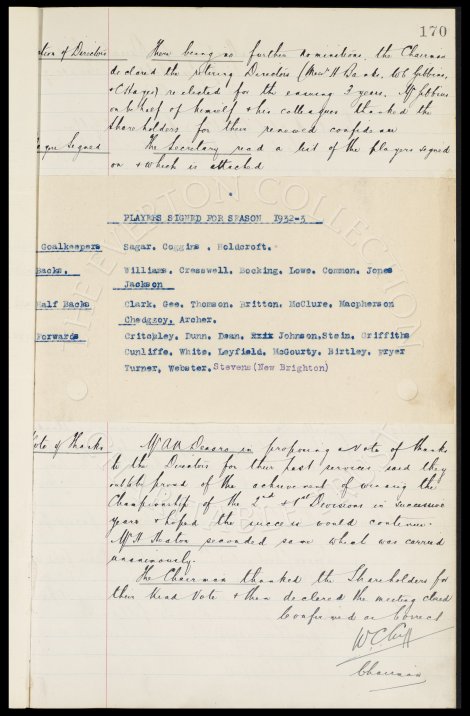 170
There being no further nominations, the Chairman
declared the retiring Directors (Messrs H. Banks, W.C. Gibbins,
& C. Hayes) reelected for the ensuing 3 years. Mr Gibbins
on behalf of himself & his colleagues thanked the
Shareholders for their renewed confidence
The Secretary read a list of the players signed
on & which is attached
tion of Directors
Signed
PLAYERS SIGNED FOR SEASON 1932-3
Goalkeepers Sagar. Coggins . Holdcroft.
Backs. Williams. Cresswell. Bocking. Lowe. Common. Jones
Jackson
Half Backs Clark. Gee. Thomson. Britton. McClure. Macpherson
Chedgzoy. Archer.
Forwards Critchley. Dunn. Dean. Rxix Johnson.Stein. Griffiths
Cunliffe. White. Leyfield. McGourty. Birtley. Fryer
Turner. Webster. Stevens (New Brighton)
THE EVERTON COLLECTION
Vote of Thanks
Mr in proposing a Vote of thanks
to the Directors for their past services, said they
ought be proud of the achievement of winning the
Championship of the 2nd & 1st Divisions in successive
years & hoped the success would continue.
Mr H. Heaton seconded same which was carried
unanimously.
The Chairman thanked the Shareholders for
their kind Vote & then declared the meeting closed
Confirmed as Correct
W.C. Cuff
Chairman